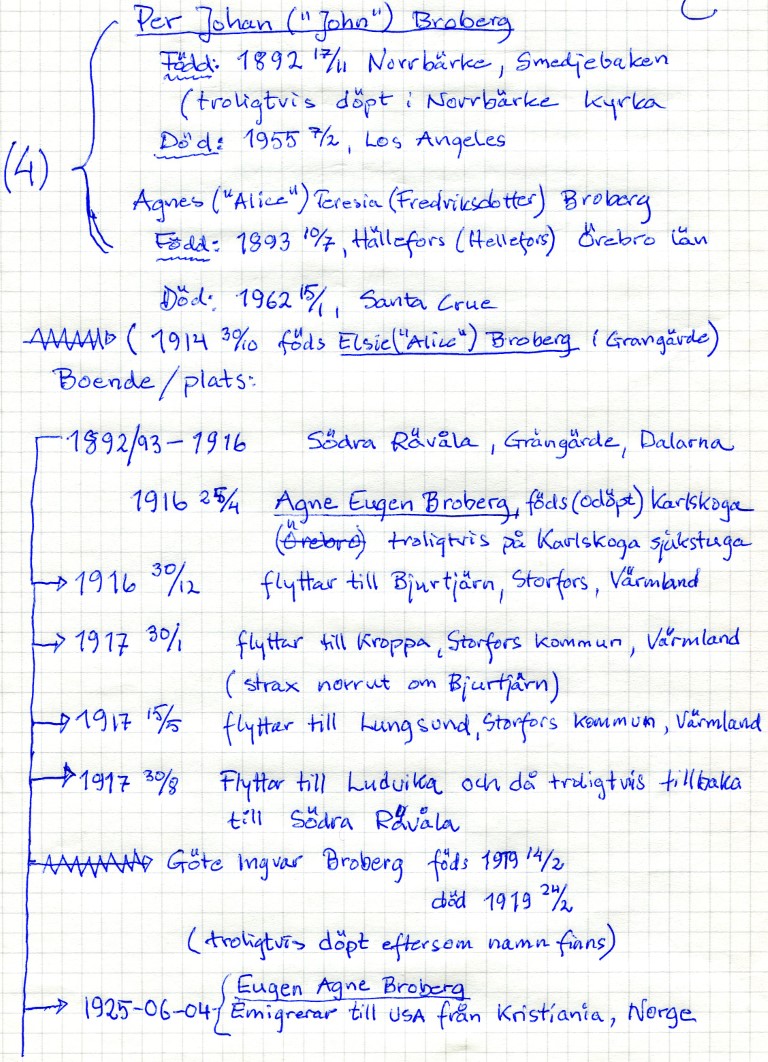 Per Johan ("John") Broberg
Född: 1892 17/11 Norrbärke, Smedjebaken
(troligtvis döpt i Norrbärke Kyrka
Död: 1955 7/2, Los Angeles
(4)
Agnes ("Alice") Teresia (Fredriksdotter) Broberg
Född: 1893 10/7, Hällefors (Hellefors) Örebro län
Död: 1962 15/1, Santa Crue
(1914 30/10 föds Elsie ("Alice") Broberg i Grangärde)
Boende/plats:
1892/93 – 1916 Södra Råvåla, Grängärde, Dalarna
1916 25/4 Agne Eugen Broberg, föds (odöpt) Karlskoga
(Örebro) troligtvis på Karlskoga sjukstuga
→ 1916 30/12 flyttar till Bjurtjärn, Storfors, Värmland
→ 1917 30/1 flyttar till Kroppa, Storfors kommun, Värmland
(strax norrut om Bjurtjärn)
→ 1917 15/5 flyttar till Lungsund, Storfors kommun, Värmland
→ 1917 30/8 Flyttar till Ludvika och då troligtvis tillbaka
till Södra Råvåla
Göte Ingvar Broberg föds 1919 14/2
död 1919 24/2
(troligtvis döpt eftersom namn finns)
Eugen Agne Broberg
→ 1925-06-04 Emigrerar till USA från Kristiania, Norge